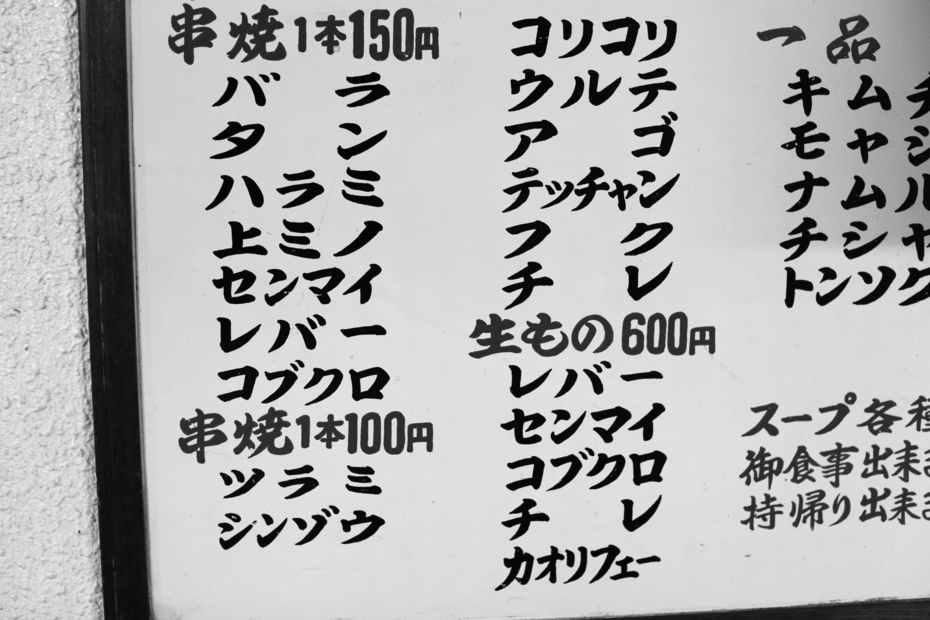 串焼1本150円
バラ
タン
ハラミ
上ミノ
センマイ
レバー
コブクロ
串焼1本100円
ツラミ
シンゾウ
コリコリ
ウルテ
アゴ
テッチャン
フク
チレ
生もの600円
レバー
センマイ
コブクロ
チレ
カオリフェー
一品
キムチ
モヤシ
ナムル
チシャ
トンソク
スープ各種
御食事出来ま
持帰り出来ま